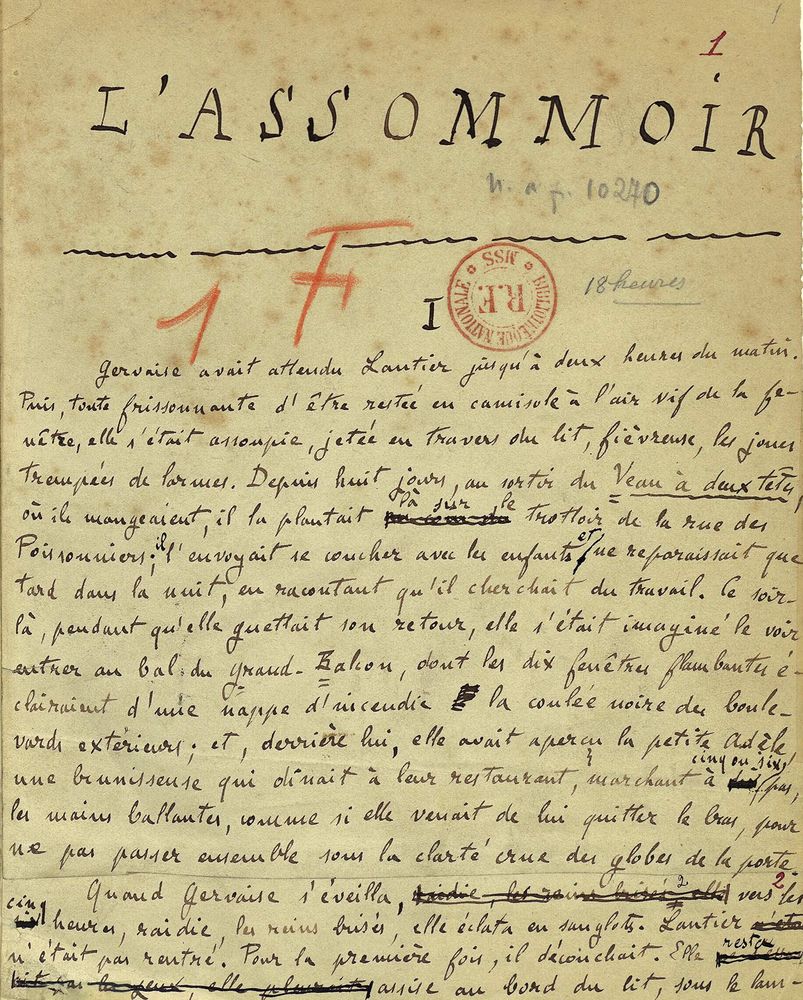 1
1
L'ASSOMMOIR
n. a f. 10270
1 F
BIBLIOTHEQUE NATIONALE MSS R.F.
18 heures
I
Gervaise avait attendu Lantier jusqu'à deux heures du matin.
Puis, toute frissonnante d'être restée en camisole à l'air vif de la fe-
nêtre, elle s'était assoupie, jetée en travers du lit, fièvreuse, les joues
trempées de larmes. Depuis huit jours, au sortir du Veau à deux têtes,
où ils mangeaient, il la plantait là sur le trottoir de la rue des
Poissonniers; il l'envoyait se coucher avec les enfants et ne reparaissait que
tard dans la nuit, en racontant qu'il cherchait du travail. Ce soir-
là, pendant qu'elle guettait son retour, elle s'était imaginé le voir
entrer au bal du Grand-Balcon, dont les dix fenêtres flambantes é-
clairaient d'une nappe d'incendie la coulée noire des boule-
vards extérieurs; et, derrière lui, elle avait aperçu la petite Adèle,
une brunisseuse qui dînait à leur restaurant, marchant à cinq ou six pas,
les mains ballantes, comme si elle venait de lui quitter le bras, pour
ne pas passer ensemble sous la clarté crue des globes de la porte.
Quand Gervaise s'éveilla, raidie, les reins brisés, elle 2 vers 2 les
cinq heures, raidie, les reins brisés, elle éclata en sanglots. Lantier
n'était pas rentré. Pour la première fois, il découchait. Elle resta
assise au bord du lit, sous le lam-